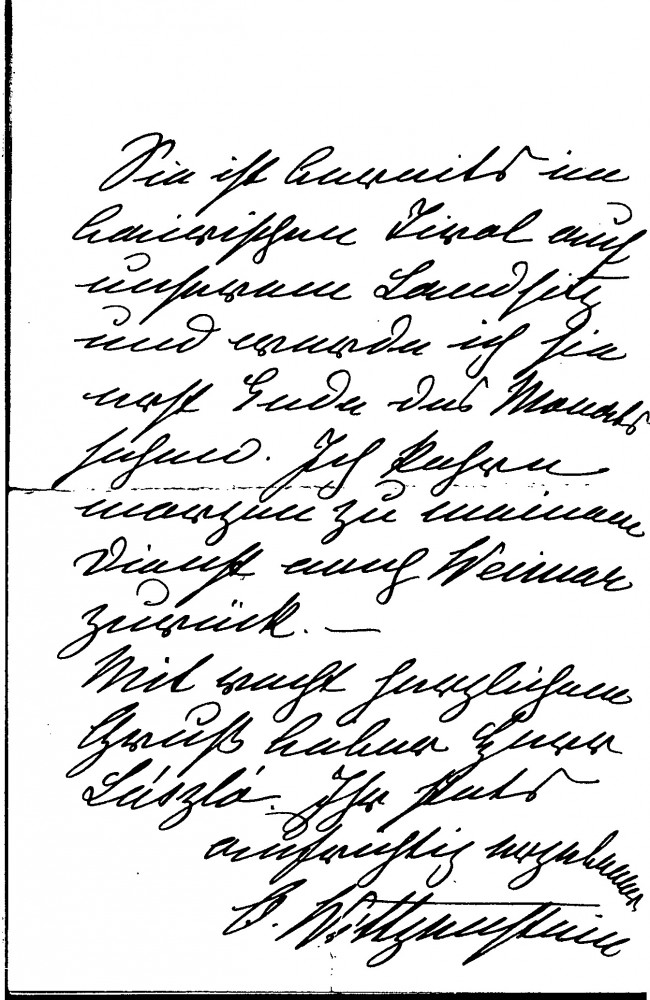 Sie ist bereits im
bairischen Tirol auf
unserem Landsitz
und werde ich sie
erst Ende des Monats
sehen. Ich kehre
morgen zu meinem
Dienst nach Weimar
zurück. —
Mit recht herzlichem
Gruß lieber Herr
László. Ihr stets
aufrichtig ergebener
O. Wittgenstein